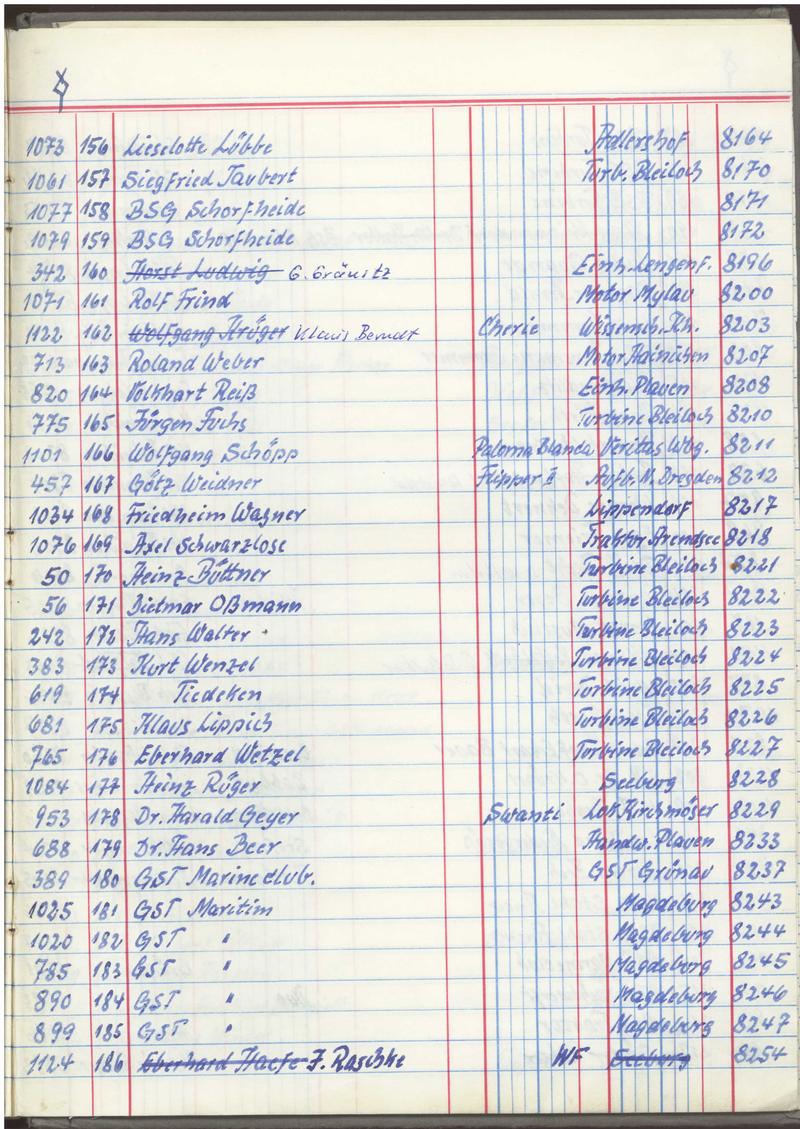 1073 156 Lieselotte Lübbe Adlershof 8164
1061 157 Siegfried Taubert Turb. Bleiloch 8170
1077 158 BSG Schorfheide 8171
1079 159 BSG Schorfheide 8172
342 160 Horst Ludwig G. Gränitz Einh. Lengenf. 8196
1071 161 Rolf Frind Motor Mylau 8200
1122 162 Wolfgang Kröger Klaus Berndt Cherie Wissensch. Rh. 8203
713 163 Roland Weber Motor Hainichen 8207
820 164 Volkhart Reiß Einh. Plauen 8208
775 165 Jürgen Fuchs Turbine Bleiloch 8210
1101 166 Wolfgang Schöpp Paloma Blanda Veritas Wbg. 8211
457 167 Götz Weidner Flipper II Aufb. N. Dresden 8212
1034 168 Friedhelm Wagner Lippendorf 8217
1076 169 Axel Schwarzlose Traktor Arendsee 8218
50 170 Heinz Büttner Turbine Bleiloch 8221
56 171 Dietmar Oßmann Turbine Bleiloch 8222
242 172 Hans Walter Turbine Bleiloch 8223
383 173 Kurt Wenzel Turbine Bleiloch 8224
619 174 Tiedeken Turbine Bleiloch 8225
681 175 Klaus Lippich Turbine Bleiloch 8226
765 176 Eberhard Wetzel Turbine Bleiloch 8227
1084 177 Heinz Röger Seeburg 8228
953 178 Dr. Harald Geyer Swanti Lok Kirchmöser 8229
688 179 Dr. Hans Beer Handw. Plauen 8233
389 180 GST Marineclub. GST Grünau 8237
1025 181 GST Maritim Magdeburg 8243
1020 182 GST " Magdeburg 8244
785 183 GST " Magdeburg 8245
890 184 GST " Magdeburg 8246
899 185 GST " Magdeburg 8247
1124 186 Eberhard Haefe J. Raschke WF Seeburg 8254